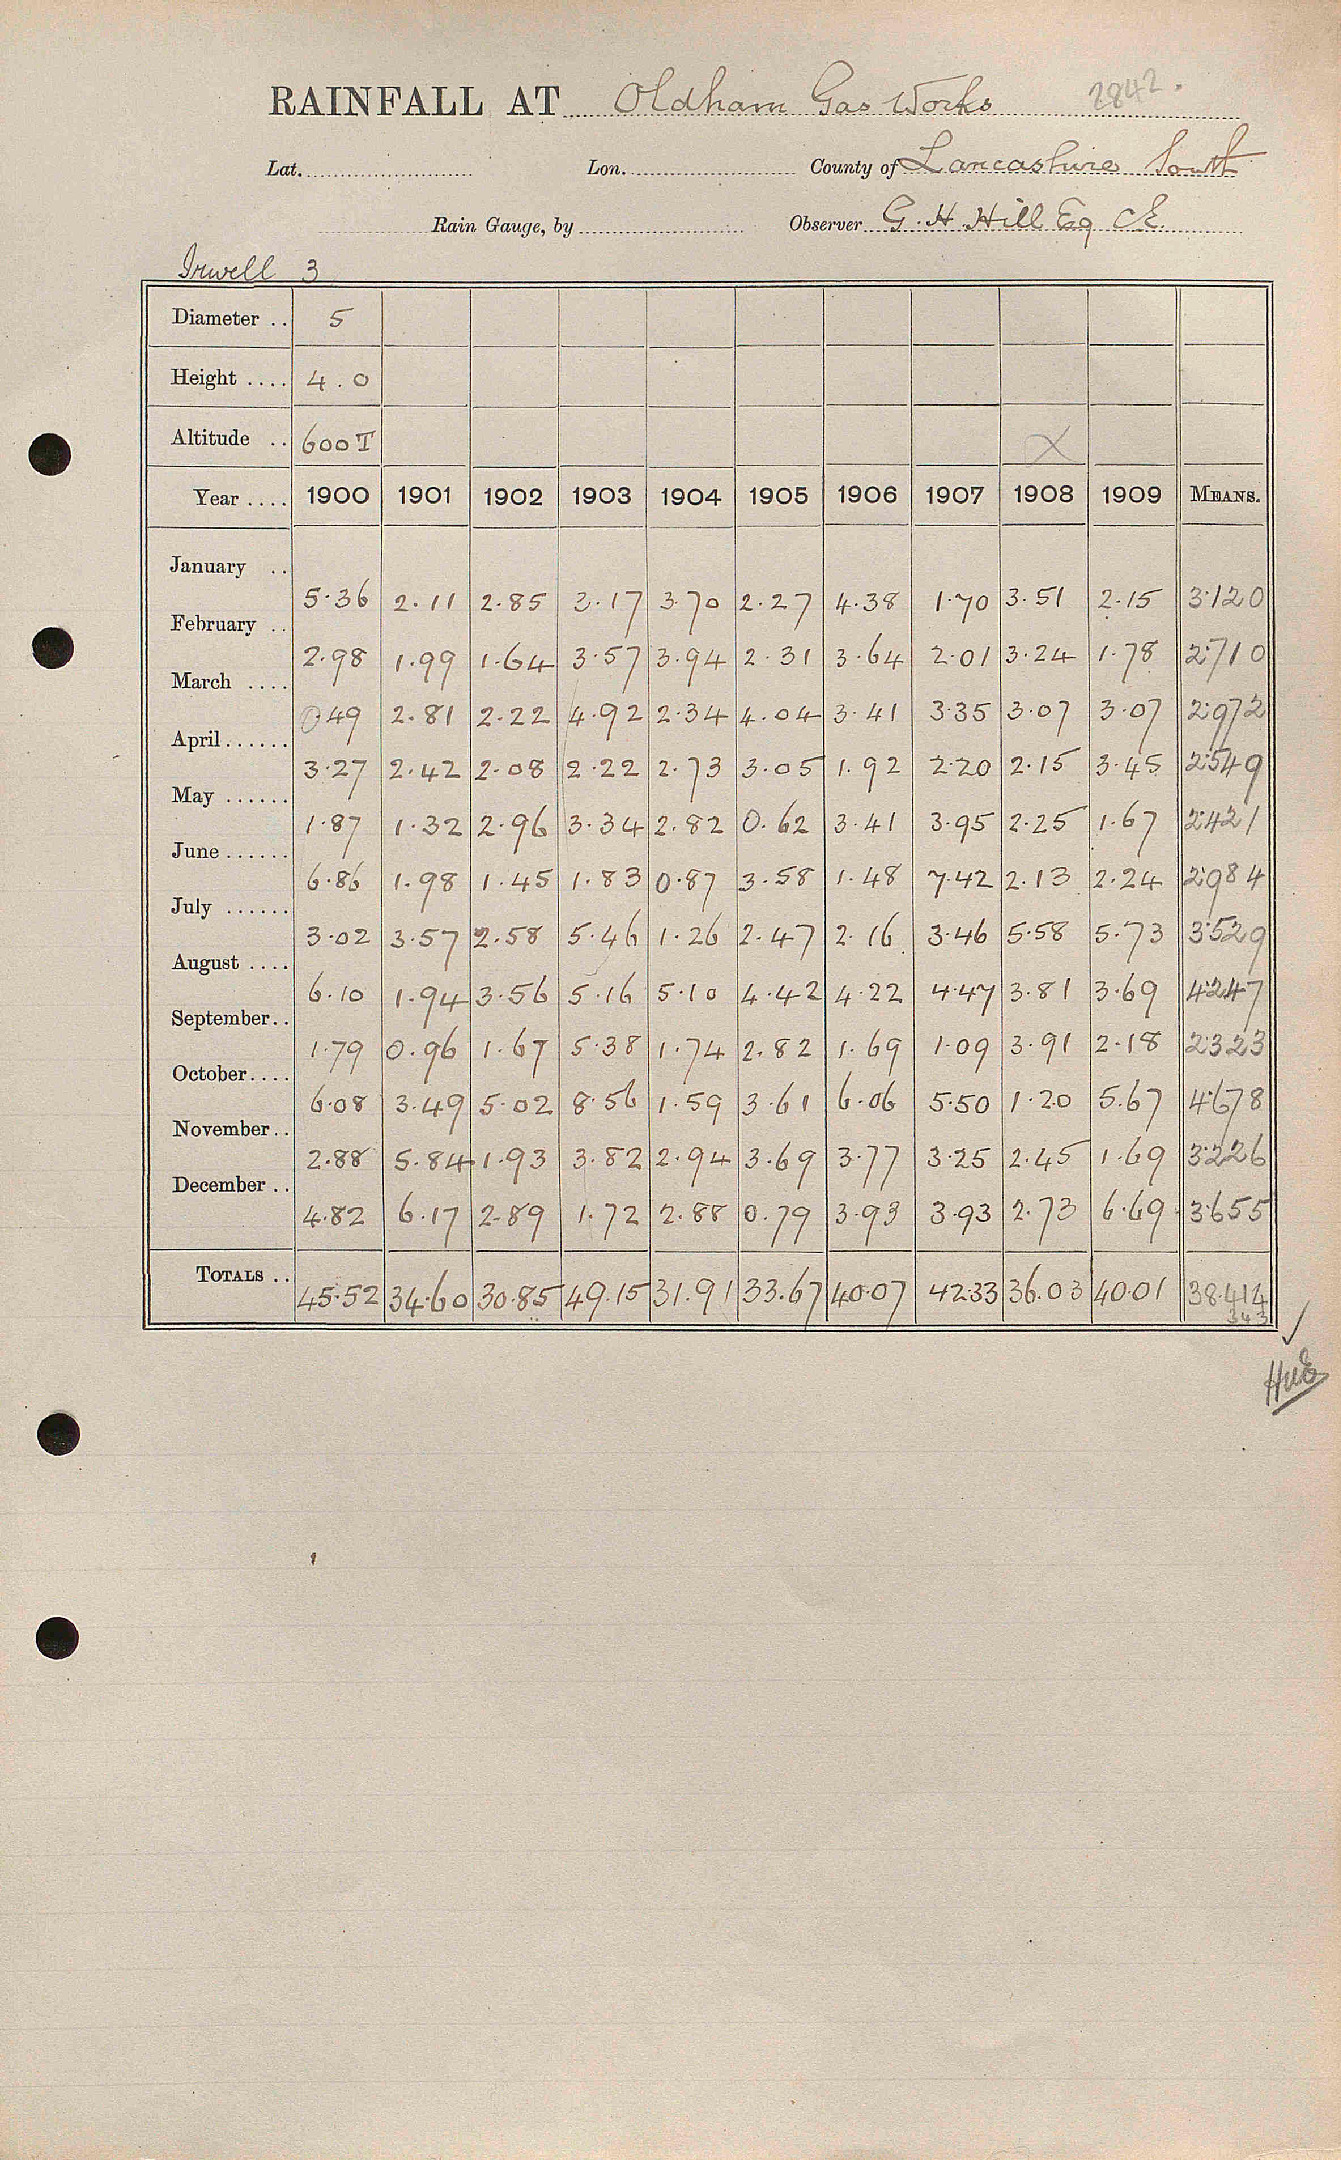 RAINFALL AT Oldham Gas Works 2842.
Lat. Lon. County of Lancashire South
Rain Gauge, by Observer G. H Hill Esq CE.
Irwell 3
Diameter .. 5
Height .... 4.0
Altitude .. 600 T X
Year .... 1900 1901 1902 1903 1904 1905 1906 1907 1908 1909 MEANS.
January .. 5.36 2.11 2.85 3.17 3.70 2.27 4.38 1.70 3.51 2.15 3.120
February .. 2.98 1.99 1.64 3.57 3.94 2.31 3.64 2.01 3.24 1.78 2.710
March .... 0.49 2.81 2.22 4.92 2.34 4.04 3.41 3.35 3.07 3.07 2.972
April ...... 3.27 2.42 2.08 2.22 2.73 3.05 1.92 2.20 2.15 3.45 2.549
May ...... 1.87 1.32 2.96 3.34 2.82 0.62 3.41 3.95 2.25 1.67 2.421
June ...... 6.86 1.98 1.45 1.83 0.87 3.58 1.48 7.42 2.13 2.24 2.984
July ...... 3.02 3.57 2.58 5.46 1.26 2.47 2.16 3.46 5.58 5.73 3.529
August .... 6.10 1.94 3.56 5.16 5.10 4.42 4.22 4.47 3.81 3.69 4.247
September.. 1.79 0.96 1.67 5.38 1.74 2.82 1.69 1.09 3.91 2.18 2.323
October.... 6.08 3.49 5.02 8.56 1.59 3.61 6.06 5.50 1.20 5.67 4.678
November.. 2.88 5.84 1.93 3.82 2.94 3.69 3.77 3.25 2.45 1.69 3.226
December .. 4.82 6.17 2.89 1.72 2.88 0.79 3.93 3.93 2.73 6.69 3.655
TOTALS .. 45.52 34.60 30.85 49.15 31.91 33.67 40.07 42.33 36.03 40.01 38.414